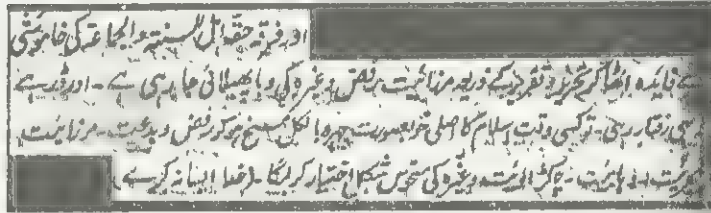 اور فرقہ حقہ اہل السنۃ والجماعۃ کی خاموشی
سے فایدہ اٹھا کر تحریر و تقریر کے ذریعہ مرزائیت، رفض وغیرہ کی وبا پھیلائی جا رہی ہے۔ اور ڈر ہے
یہی رفتار رہی۔ تو کسی وقت اسلام کا اصلی خوبصورت چہرہ بالکل مسخ ہو کر رفض و بدعیت۔ مرزائیت
وہابیت۔ چکڑالویت وغیرہ کی منحوس شکل اختیار کر لیگا۔ (خدا ایسا نہ کرے)